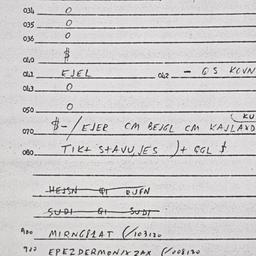 034 0
035 0
036 0
040 $
041 EJEL 042 - GS KOVN
043 0
050 0
KU
070 $-/EJER CM BEJGL CM KAJLAXD
080 TIKT STAVUJES )+ GGL $
HEJSN GI RUFN
SUDI GI SUDI
900 MIRNGS1AT (/103120
900 EPEZDERMONIXZAX (/008120